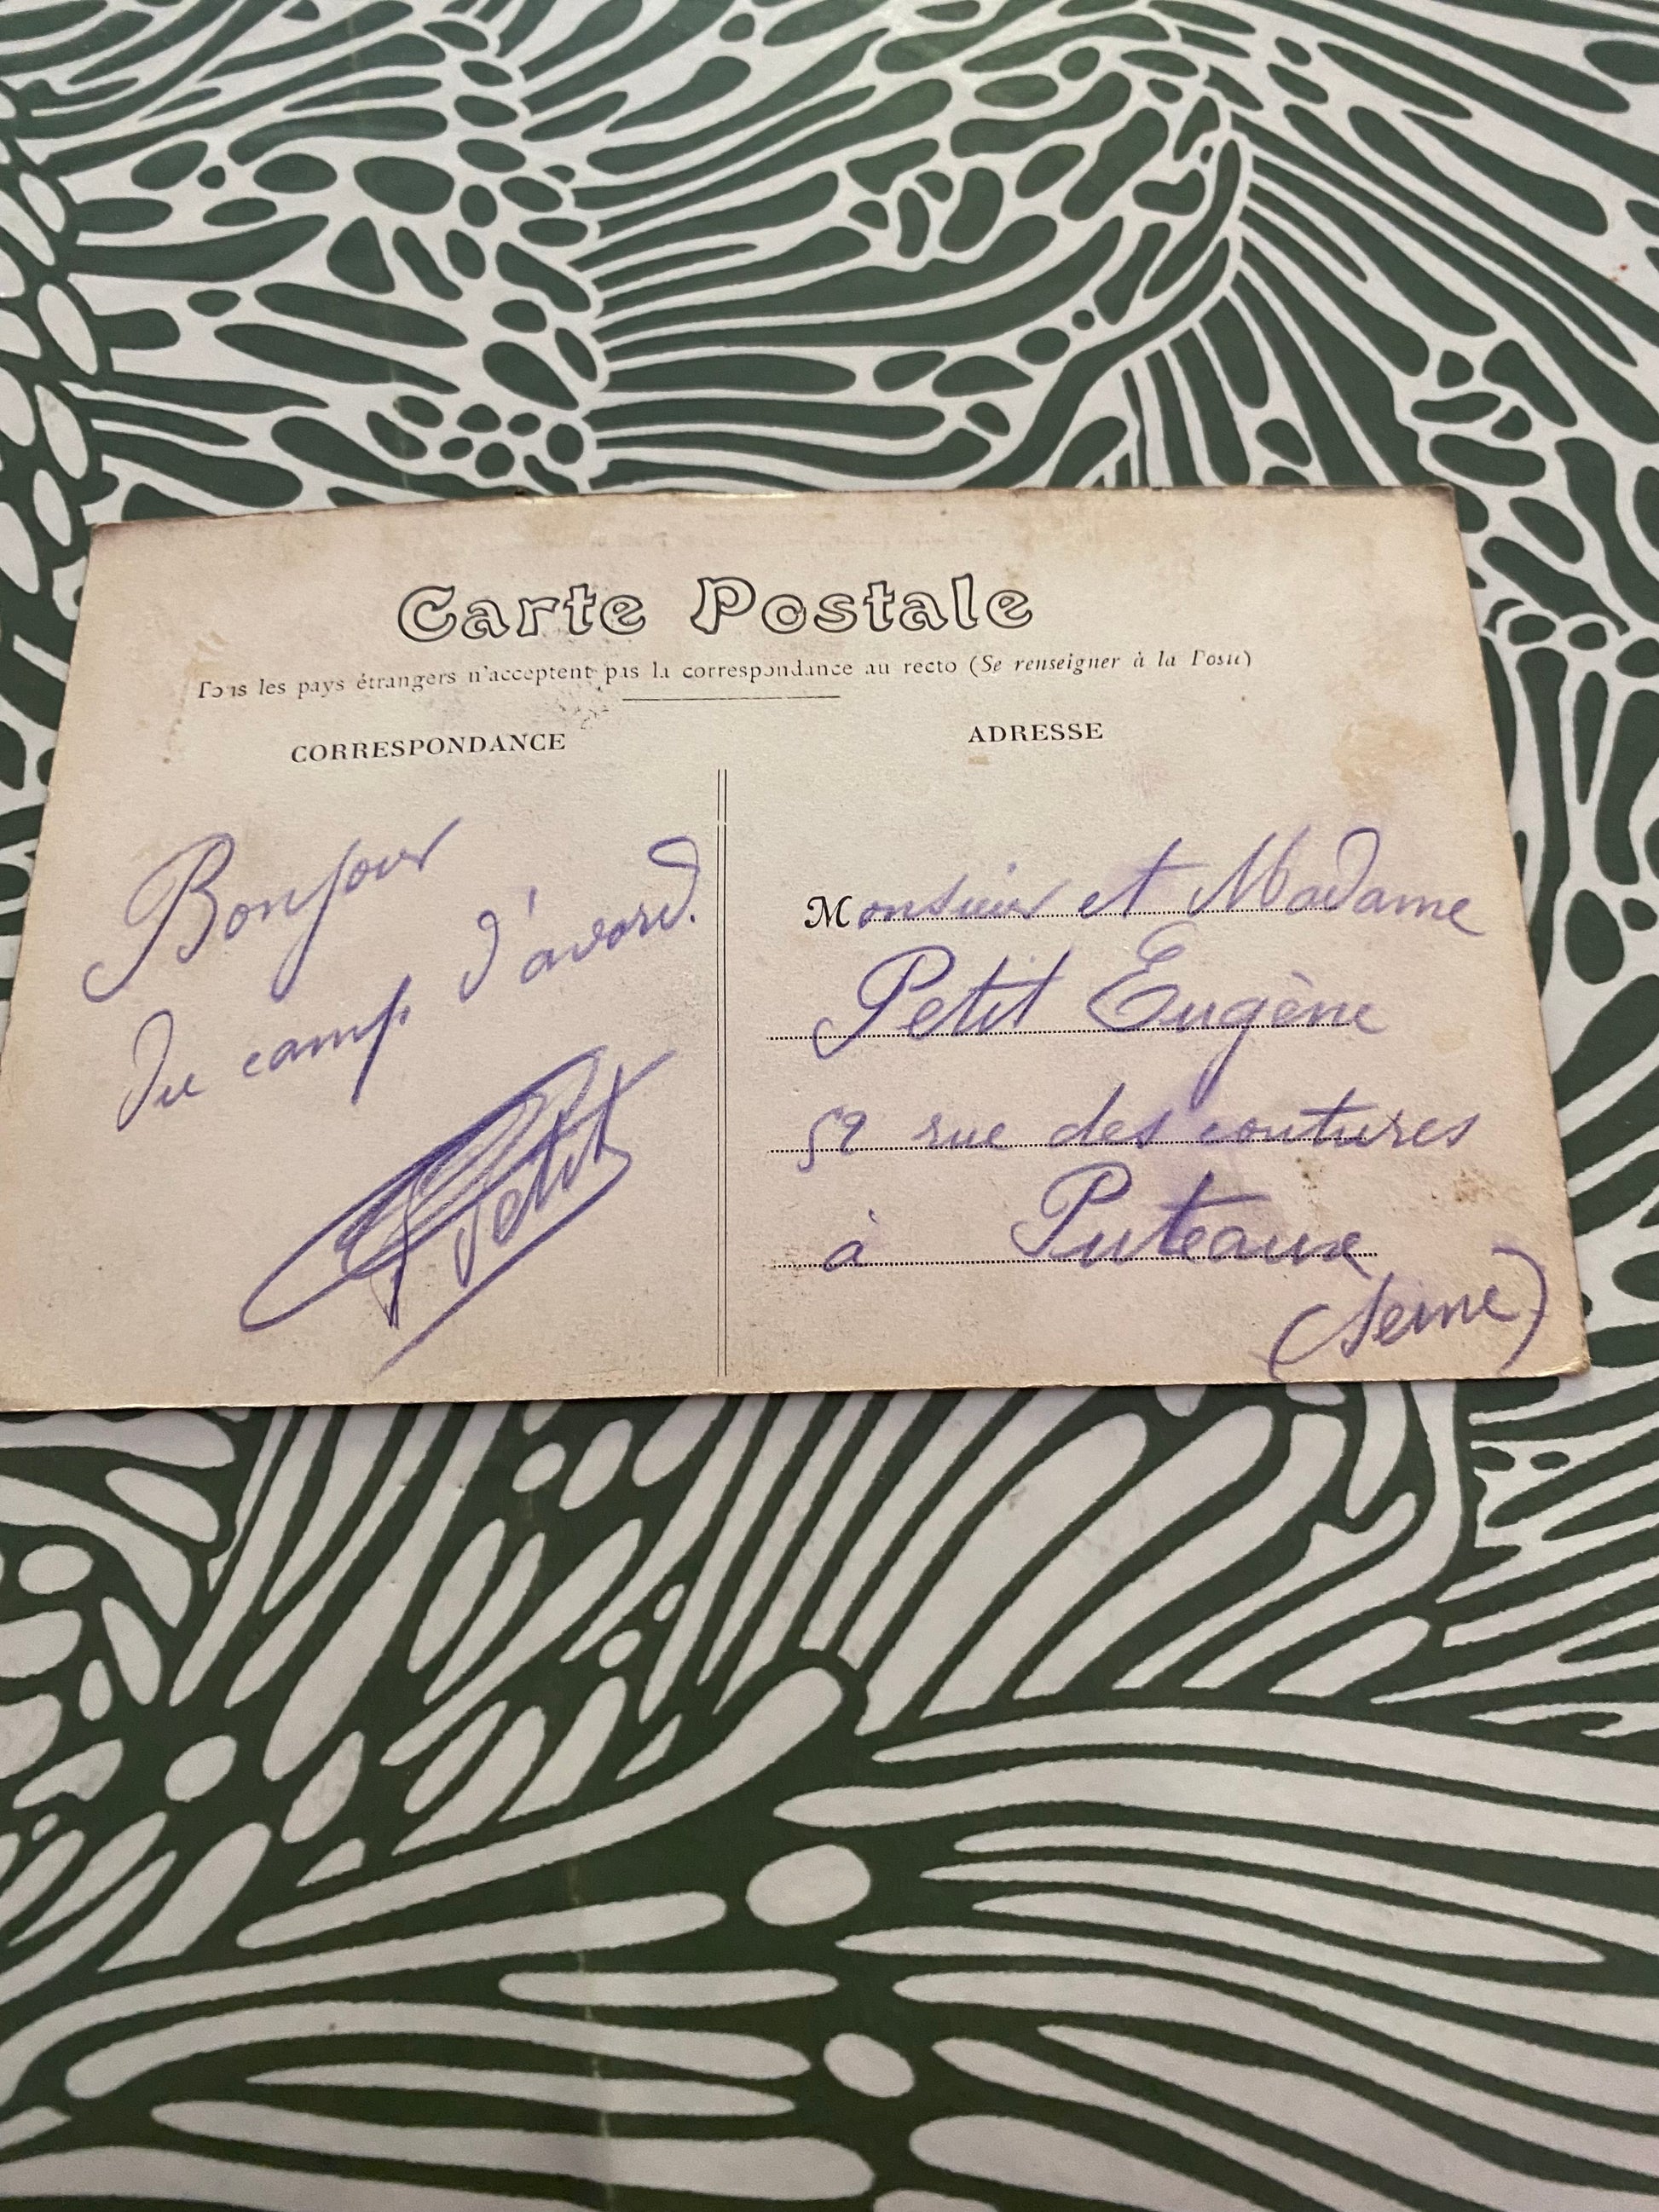 Carte Postale
Tous les pays étrangers n'acceptent pas la correspondance au recto (Se renseigner à la Poste)
CORRESPONDANCE
Bonjour
du camp d'avord.
Petit
ADRESSE
Monsieur et Madame
Petit Eugène
59 rue des coutures
à Puteaux
(Seine)